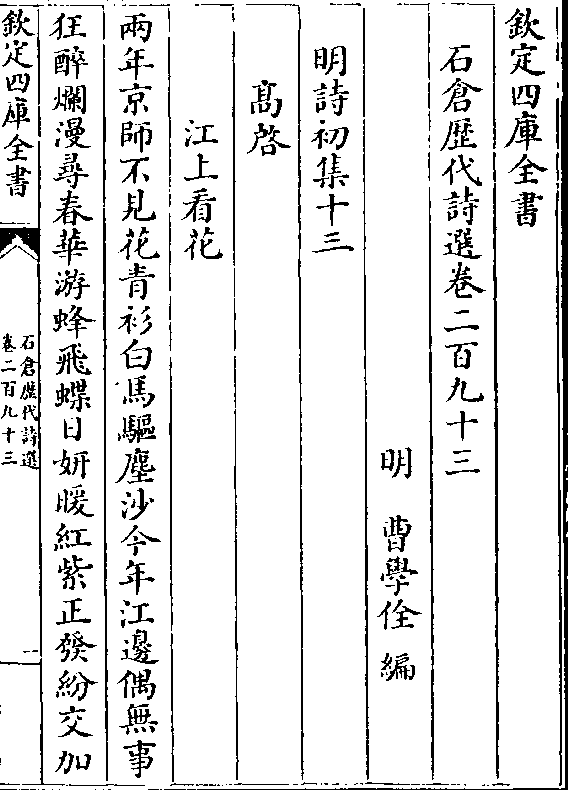 欽定四庫全書
石倉歷代詩選卷二百九十三
明　曹學佺　編
明詩初集十三
髙啓
江上看花
兩年京師不見花青衫白馬驅塵沙今年江邊偶無事
狂醉爛漫尋春華游蜂飛蝶日妍暖紅紫正發紛交加
欽定四庫全書
石倉歷代詩選
卷二百九十三
一